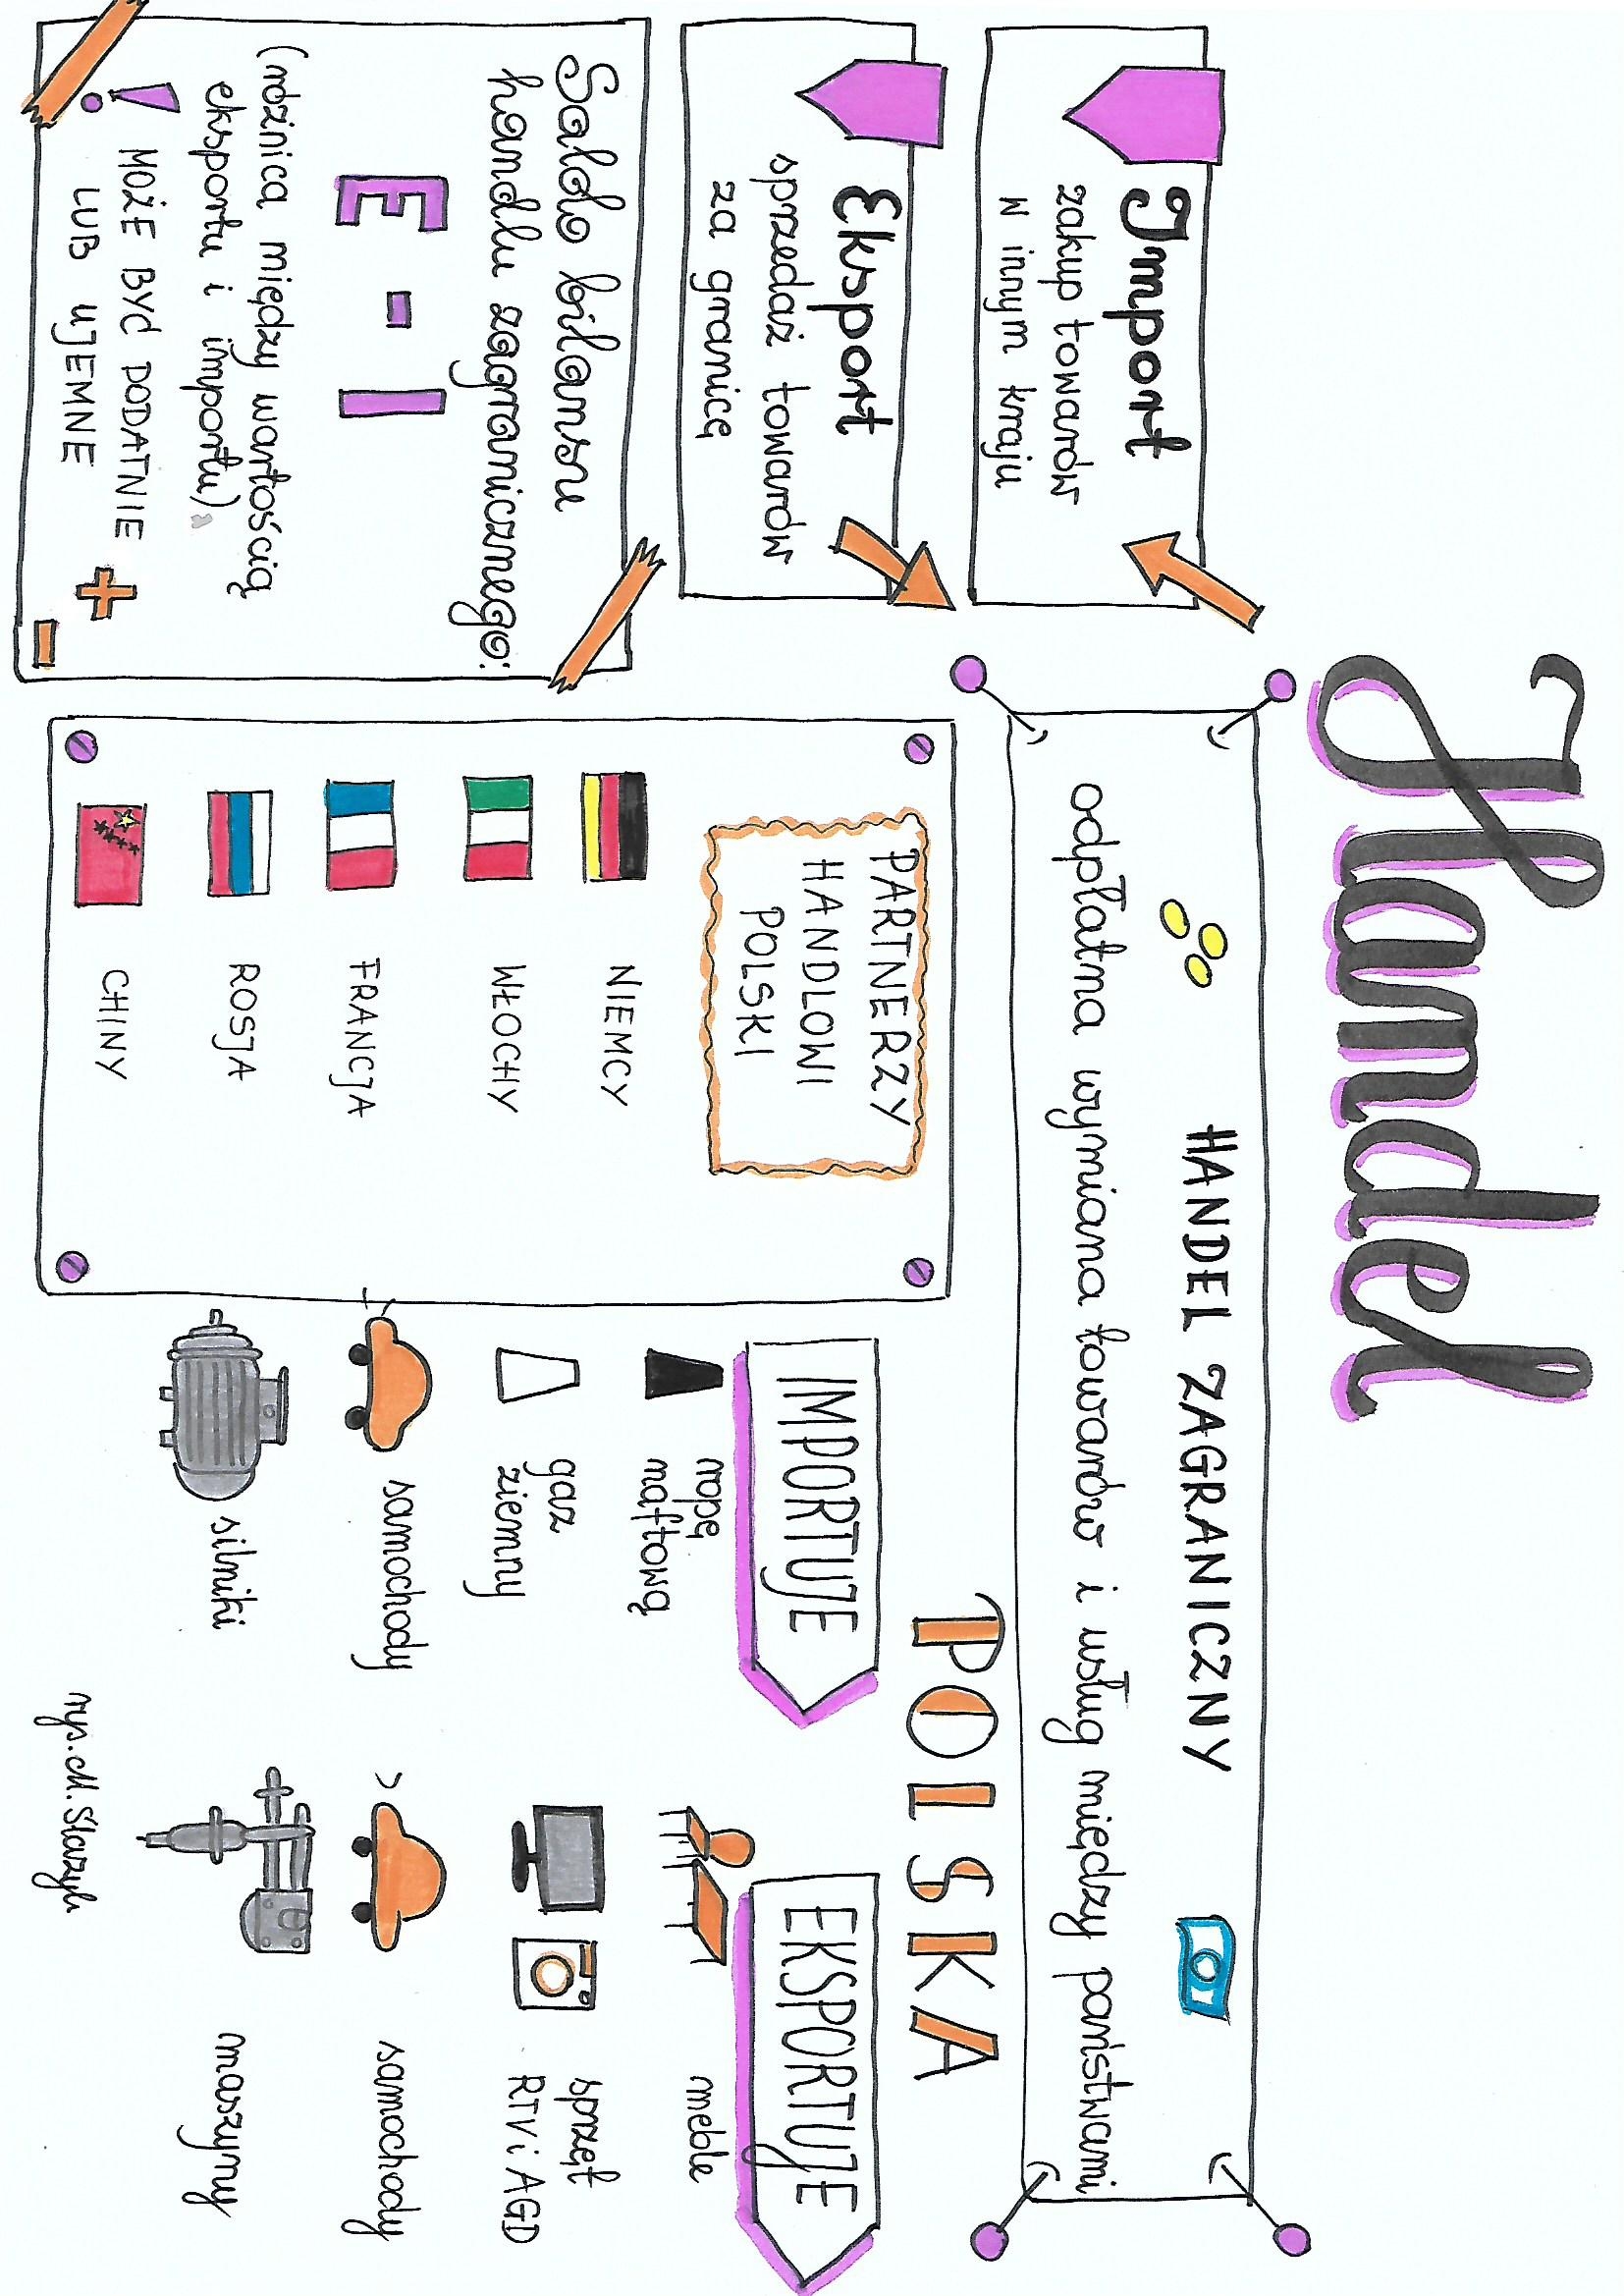 Handel
Import
zakup towarów
w innym kraju
Eksport
sprzedaż towarów
za granicę
Saldo bilansu
handlu zagranicznego:
E - I
(różnica między wartością
eksportu i importu)
! MOŻE BYĆ PODATNIE +
LUB UJEMNE -
HANDEL ZAGRANICZNY
odpłatna wymiana towarów i usług między państwami
PARTNERZY
HANDLOWI
POLSKI
NIEMCY
WŁOCHY
FRANCJA
ROSJA
CHINY
POLSKA
IMPORTUJE
ropę
naftową
gaz
ziemny
samochody
silniki
EKSPORTUJE
meble
sprzęt
RTV i AGD
samochody
maszyny
rys. M.